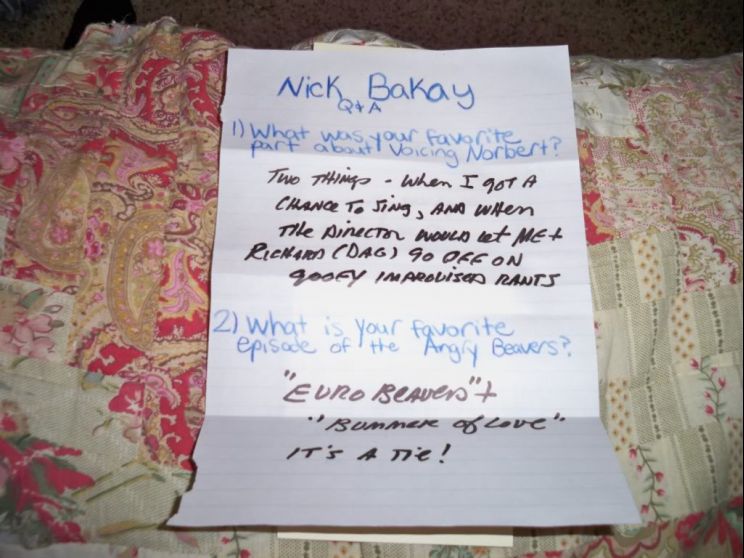 Nick Bakay
Q+A
1) What was your favorite
part about voicing Norbert?
TWO THINGS - WHEN I GOT A
CHANCE TO SING, AND WHEN
THE DIRECTOR WOULD LET ME +
RICHARD (DAG) GO OFF ON
GOOFY IMPROVISED RANTS
2) What is your favorite
episode of the Angry Beavers?
"EURO BEAVERS" +
"BUMMER OF LOVE"
IT'S A TIE!